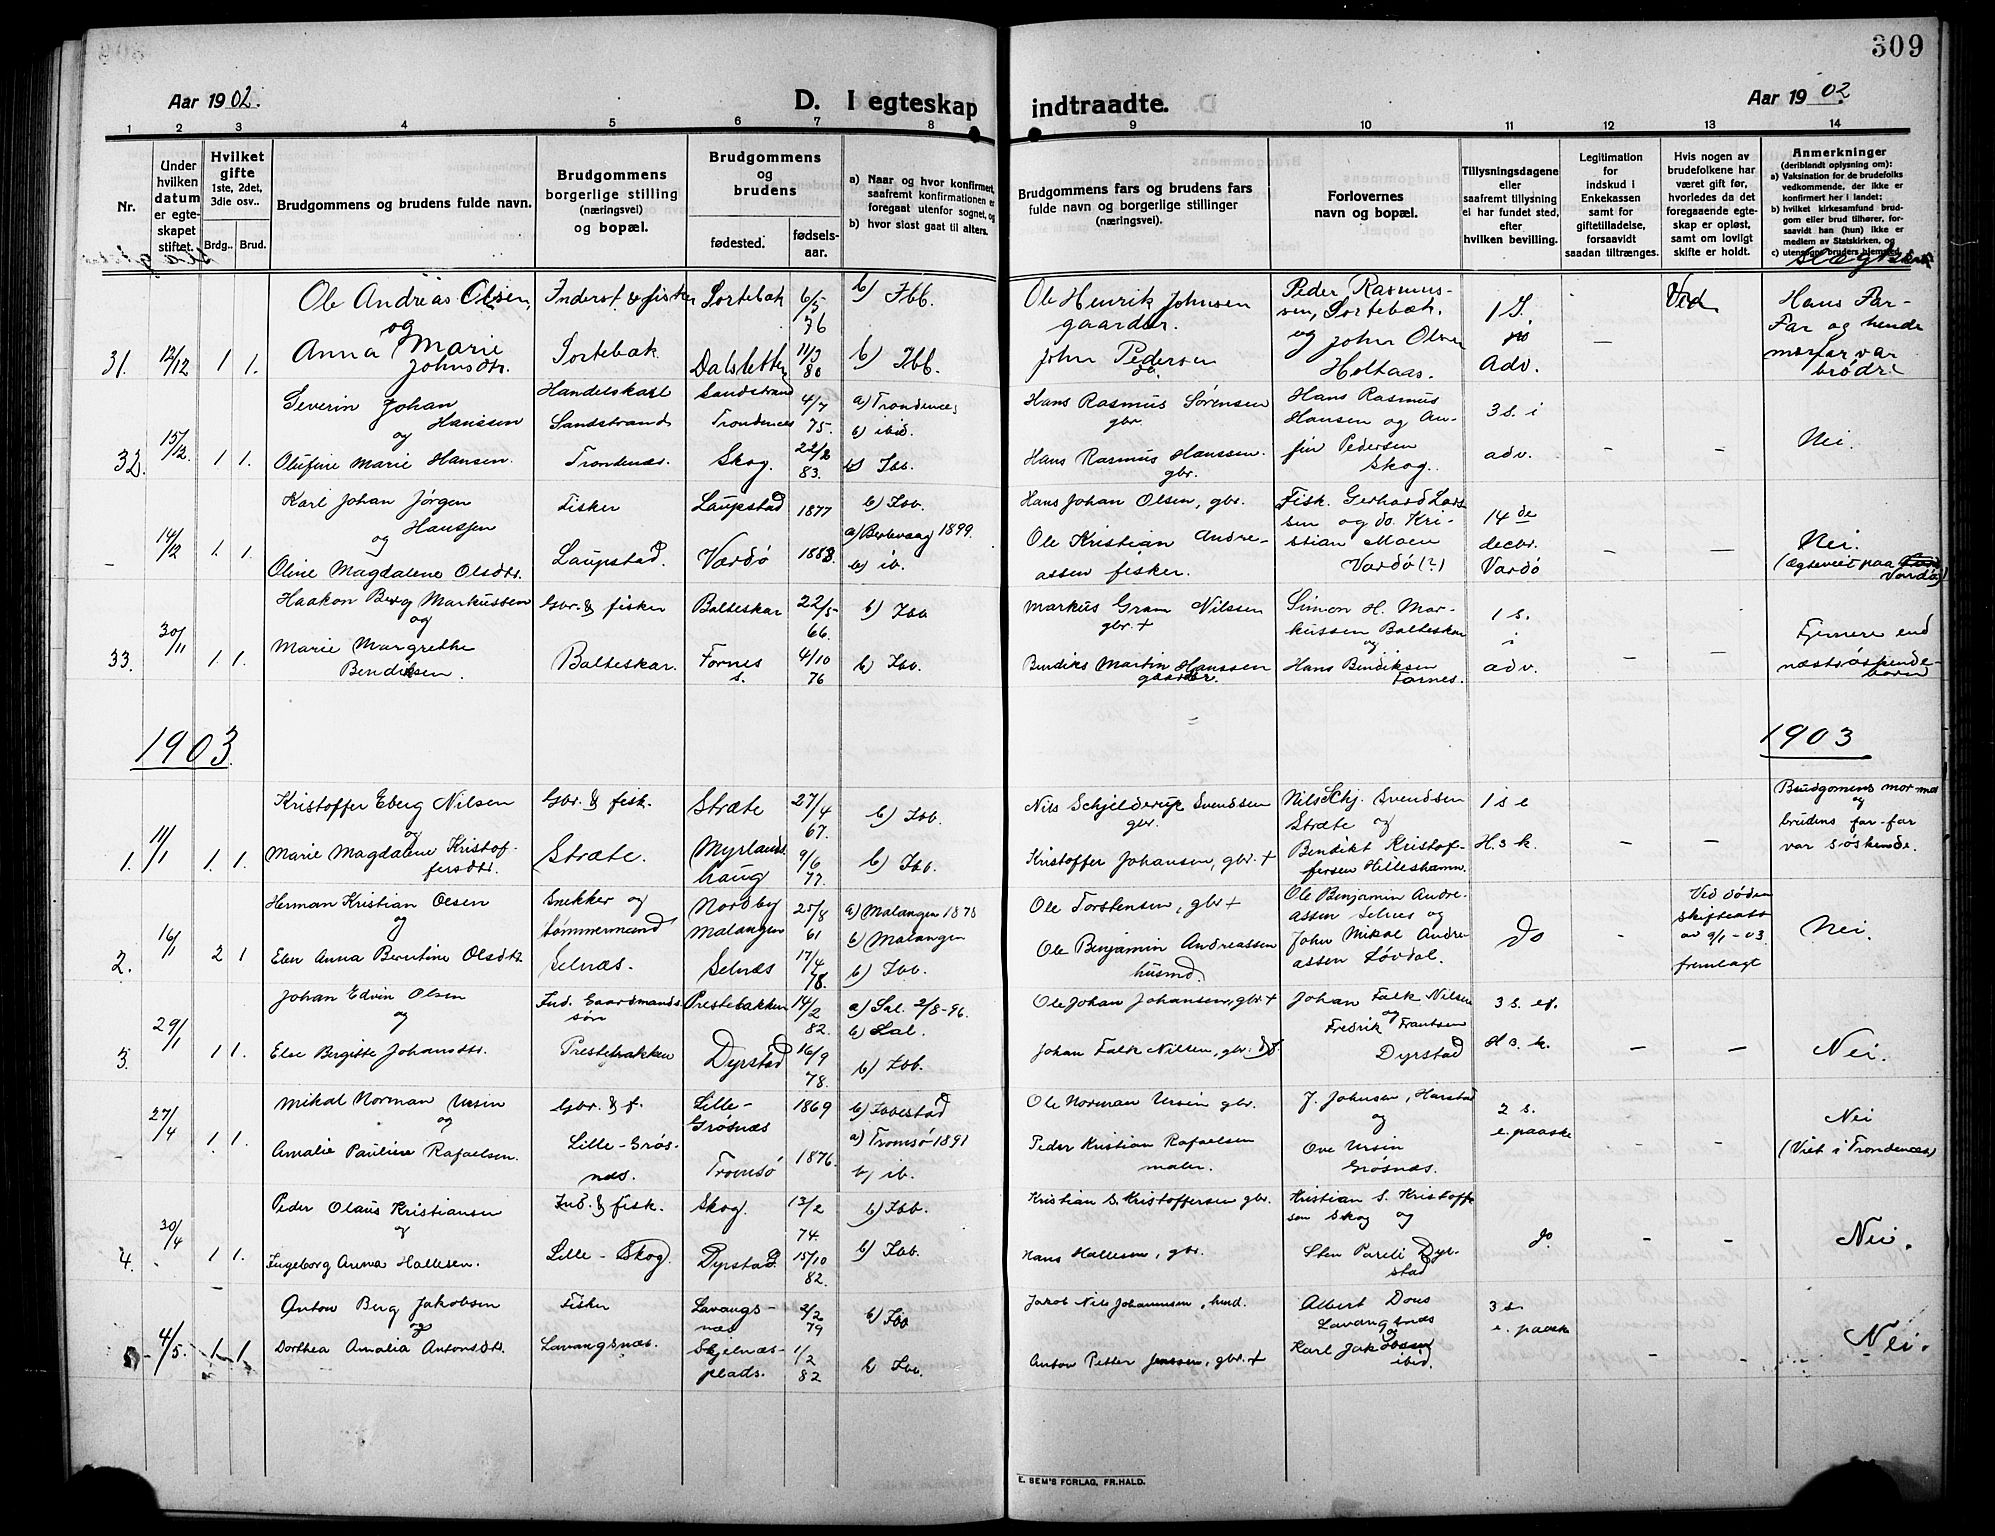 309
Aar 1902.
D. I egteskap indtraadte.
Aar 1902
1 2 3 4 5 6 7 8 9 10 11 12 13 14
Nr.
Under hvilken datum er egteskapet stiftet.
Hvilket gifte
1ste, 2det, 3die osv..
Brdg.. Brud.
Brudgommens og brudens fulde navn.
Brudgommens borgerlige stilling (næringsvei) og bopæl.
Brudgommens og brudens
fødested.
fødsels-aar.
a) Naar og hvor konfirmert, saafremt konfirmationen er foregaat utenfor sognet, og
b) hvor sidst gaat til alters.
Brudgommens fars og brudens fars fulde navn og borgerlige stillinger (næringsvei).
Forlovernes navn og bopæl.
Tillysningsdagene eller saafremt tillysning ei har fundet sted, efter hvilken bevilling.
Legitimation for indskud i Enkekassen samt for giftetilladelse, forsaavidt saadan tiltrænges.
Hvis nogen av brudefolkene har været gift før, hvorledes da det foregaaende egteskap er opløst, samt om lovlig skifte er holdt.
Anmerkninger
(deriblandt oplysning om):
a) Vaksination for de brudefolks vedkommende, der ikke er konfirmert her i landet;
b) hvilket kirkesamfund brudgom eller brud tilhører, forsaavidt han (hun) ikke er medlem av Statskirken, og
c) utensogns bruders hjemsted.
31. 12/12 1 1.
Ole Andreas Olsen,
og
Anna Marie
Johnsdtr.
Inderst & fisker
Sortebæk.
Sortebæk 6/5 76
Dalsletten 11/3 80
b) Ibb.
b) Ibb.
Ole Henrik Johnsen
gaardbr.
John Pedersen
do.
Peder Rasmus-
sen, Sortebæk.
og John Olsen
Holtaas.
1 S.
Adv.
—
Hans Far-
Far og hende
morfar var
brødre
32. 15/12. 1. 1.
Severin Johan
Hanssen
og
Olufine Marie Hansen.
Handelskarl
Sandstrand
Trondenæs.
Sandstrand
Trondenes 4/7 75.
Skog. 22/2 83.
a) Trondenes
b) ibid.
b) Ibb.
Hans Rasmus Sørensen
gbr.
Hans Rasmus Hanssen.
gbr.
Hans Rasmus
Hansen og An-
fin Pedersen
Skog.
3 s. i
adv.
Nei.
- 14/12 1. 1.
Karl Johan Jørgen
Hanssen
og
Oline Magdalene Olsdtr.
Fisker
Laupstad.
Laupstad 1877
Vardø 1883.
b) Ibb.
a) Berlevaag 1899.
b) ib.
Hans Johan Olsen, gbr.
Ole Kristian Andre-
assen fisker.
Fisk. Gerhard Lars-
sen og do. Kri-
stian Moen
Vardø (?)
14de
decbr.
Vardø
— —
Nei.
(Ægteviet paa
Vardø)
33. 30/11 1. 1.
Haakon Berg Markussen
og
Marie Margrethe
Bendiksen.
Gbr. & fisker
Balteskar.
Balteskar 22/5 66.
Fornes
s. 4/10 76
b) Ibb
b) Ibb.
Markus Gram Nilssen
gbr. +
Bendiks Martin Hanssen
gaardbr.
Simon H. Mar-
kussen Balteskar
og
Hans Bendiksen
Fornes.
1 s.
i
adv.
— —
Fjernere end
næstsøskende-
børn
1903.
1903
1. 11/1 1. 1.
Kristoffer Eberg Nilsen
og
Marie Magdalene Kristof-
fersdtr.
Gbr. & fisk.
Stræte.
Stræte 27/4 67.
Myrlands-
haug 9/6 77.
b) Ibb.
b) Ibb.
Nils Schjelderup Svendsen
gbr.
Kristoffer Johansen, gbr. +
Nils Schj. Svendsen
Stræte og
Bendikt Kristof-
fersen Hilleshamn.
1 s e
H. 3 k.
— —
Brudgomens mor-mor
og
brudens far-far
var søskende.
2. 16/1 2 1
Herman Kristian Olsen
og
Elen Anna Berntine Olsdtr.
Snekker og
tømmermand
Selnæs.
Nordby
Malangen 25/8 61
Selnæs 17/4 78.
a) Malangen 1878
b) Malangen
b) Ibb.
Ole Torstensen, gbr +
Ole Benjamin Andreassen
husmd
Ole Benjamin Andre-
assen Selnes og
John Mikal Andre-
assen Løvdal.
do
-
Ved døden
skifteatt
av 9/1 - 03.
fremlagt
Nei.
3. 29/1 1 1.
Johan Edvin Olsen
og
Else Birgitte Johansdtr.
Ind. Gaardmands-
søn
Prestebakken
Prestebakken 14/2 82.
Dyrstad 16/9 78.
a) Sal. 2/8-96.
b) Sal.
b) Ibb.
Ole Johan Johansen, gbr +
Johan Falk Nilsen, gbr.
Johan Falk Nilsen
og
Fredrik Frantsen
Dyrstad
3 s. ef.
H 3. k.
— —
Nei.
- 27/4 1. 1.
Mikal Norman Ursin
og
Amalie Pauline Rafaelsen.
Gbr. & f.
Lille-Grøs-
næs.
Lille-
Grøsnæs 1869
Tromsø 1876.
b) Ibbestad
a) Tromsø 1891
b) ib.
Ole Norman Ursin gbr.
Peder Kristian Rafaelsen
maler.
J. Johnsen, Harstad
og
Ove Ursin
Grøsnæs.
2 s.
e. paaske
Nei
(Viet i Trondenæs)
4. 30/4 1 1.
Peder Olaus Kristiansen
og
Ingeborg Anna Hallesen.
Ind. & fisk.
Lille-Skog
Skog. 13/2 74.
Dyrstad. 15/10 82.
b) Ibb.
b) Ibb.
Kristian S. Kristoffersen gbr.
Hans Hallesen, gbr.
Kristian S. Kristoffer-
sen Skog og
Sten Pareli Dyr-
stad
do.
- -
Nei.
5 4/5. 1 1.
Anton Berg Jakobsen
og
Dorthea Amalia Antonsdtr.
Fisker
Lavangsnæs.
Lavangs-
næs 2/2 79
Skjelnæs-
plads. 1/2 82
b) Ibb
b) Ibb.
Jakob Nils Johannesen, husmd.
Anton Petter Jenssen, gbr. +
Albert Dons
Lavangsnæs
og
Karl Jakobsen
ibid.
3 s.
e. paaske
Nei.
E. SEM'S FORLAG, FR.HALD.